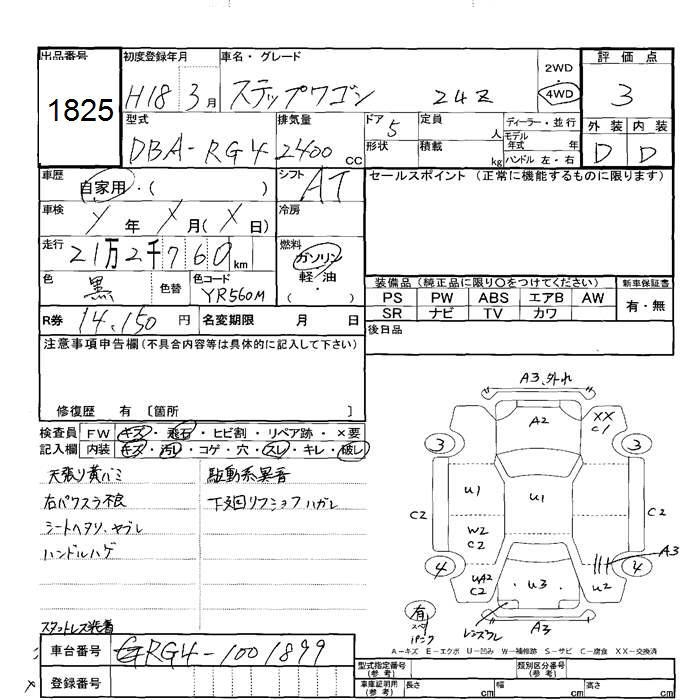 出品番号 初度登録年月 車名・グレード 2WD 評価点
1825 H18 3月 ステップワゴン 24Z ・ 4WD 3
型式 排気量 ドア 5 定員 人 ディーラー・並行 外装 内装
DBA-RG4 2400 CC 形状 積載 kg モデル年式 年 D D
ハンドル 左・右
車歴 自家用・( ) シフト AT セールスポイント (正常に機能するものに限ります)
車検 年 X月(X日) 冷房
走行 21万2千760km 燃料 ガソリン
軽・油
( )
色 黒 色替 色コード YR560M
装備品 (純正品に限り〇をつけてください) 新車保証書
PS PW ABS エアB AW 有・無
SR ナビ TV カワ
R券 14,150円 名変期限 月 日 後日品
注意事項申告欄(不具合内容等は具体的に記入して下さい)
修復歴 有 〔箇所 〕
検査員 FW キズ・飛石・ヒビ割・リペア跡・×要
記入欄 内装 キズ・汚レ・コゲ・穴・スレ・キレ・破レ
天張り黄バミ 駆動系異音
右パワスラ不良 下廻リフショクハガレ
シートヘタリ、ヤブレ
ハンドルハゲ
スタットレス装着
A3、外れ
A2 XX
C1
3 3
U1 U1
C2 C2
W2
C2
4 4 A3
UA2
C2 U3 U2
有
スペア
パンク レンズワレ A3
A-キズ E-エクボ U-凹み W-補修跡 S-サビ C-腐食 XX-交換済
車台番号 RG4-1001899
登録番号
型式指定番号(参考) 類別区分番号(参考)
車庫証明用(参考) 長さ cm 幅 cm 高さ cm